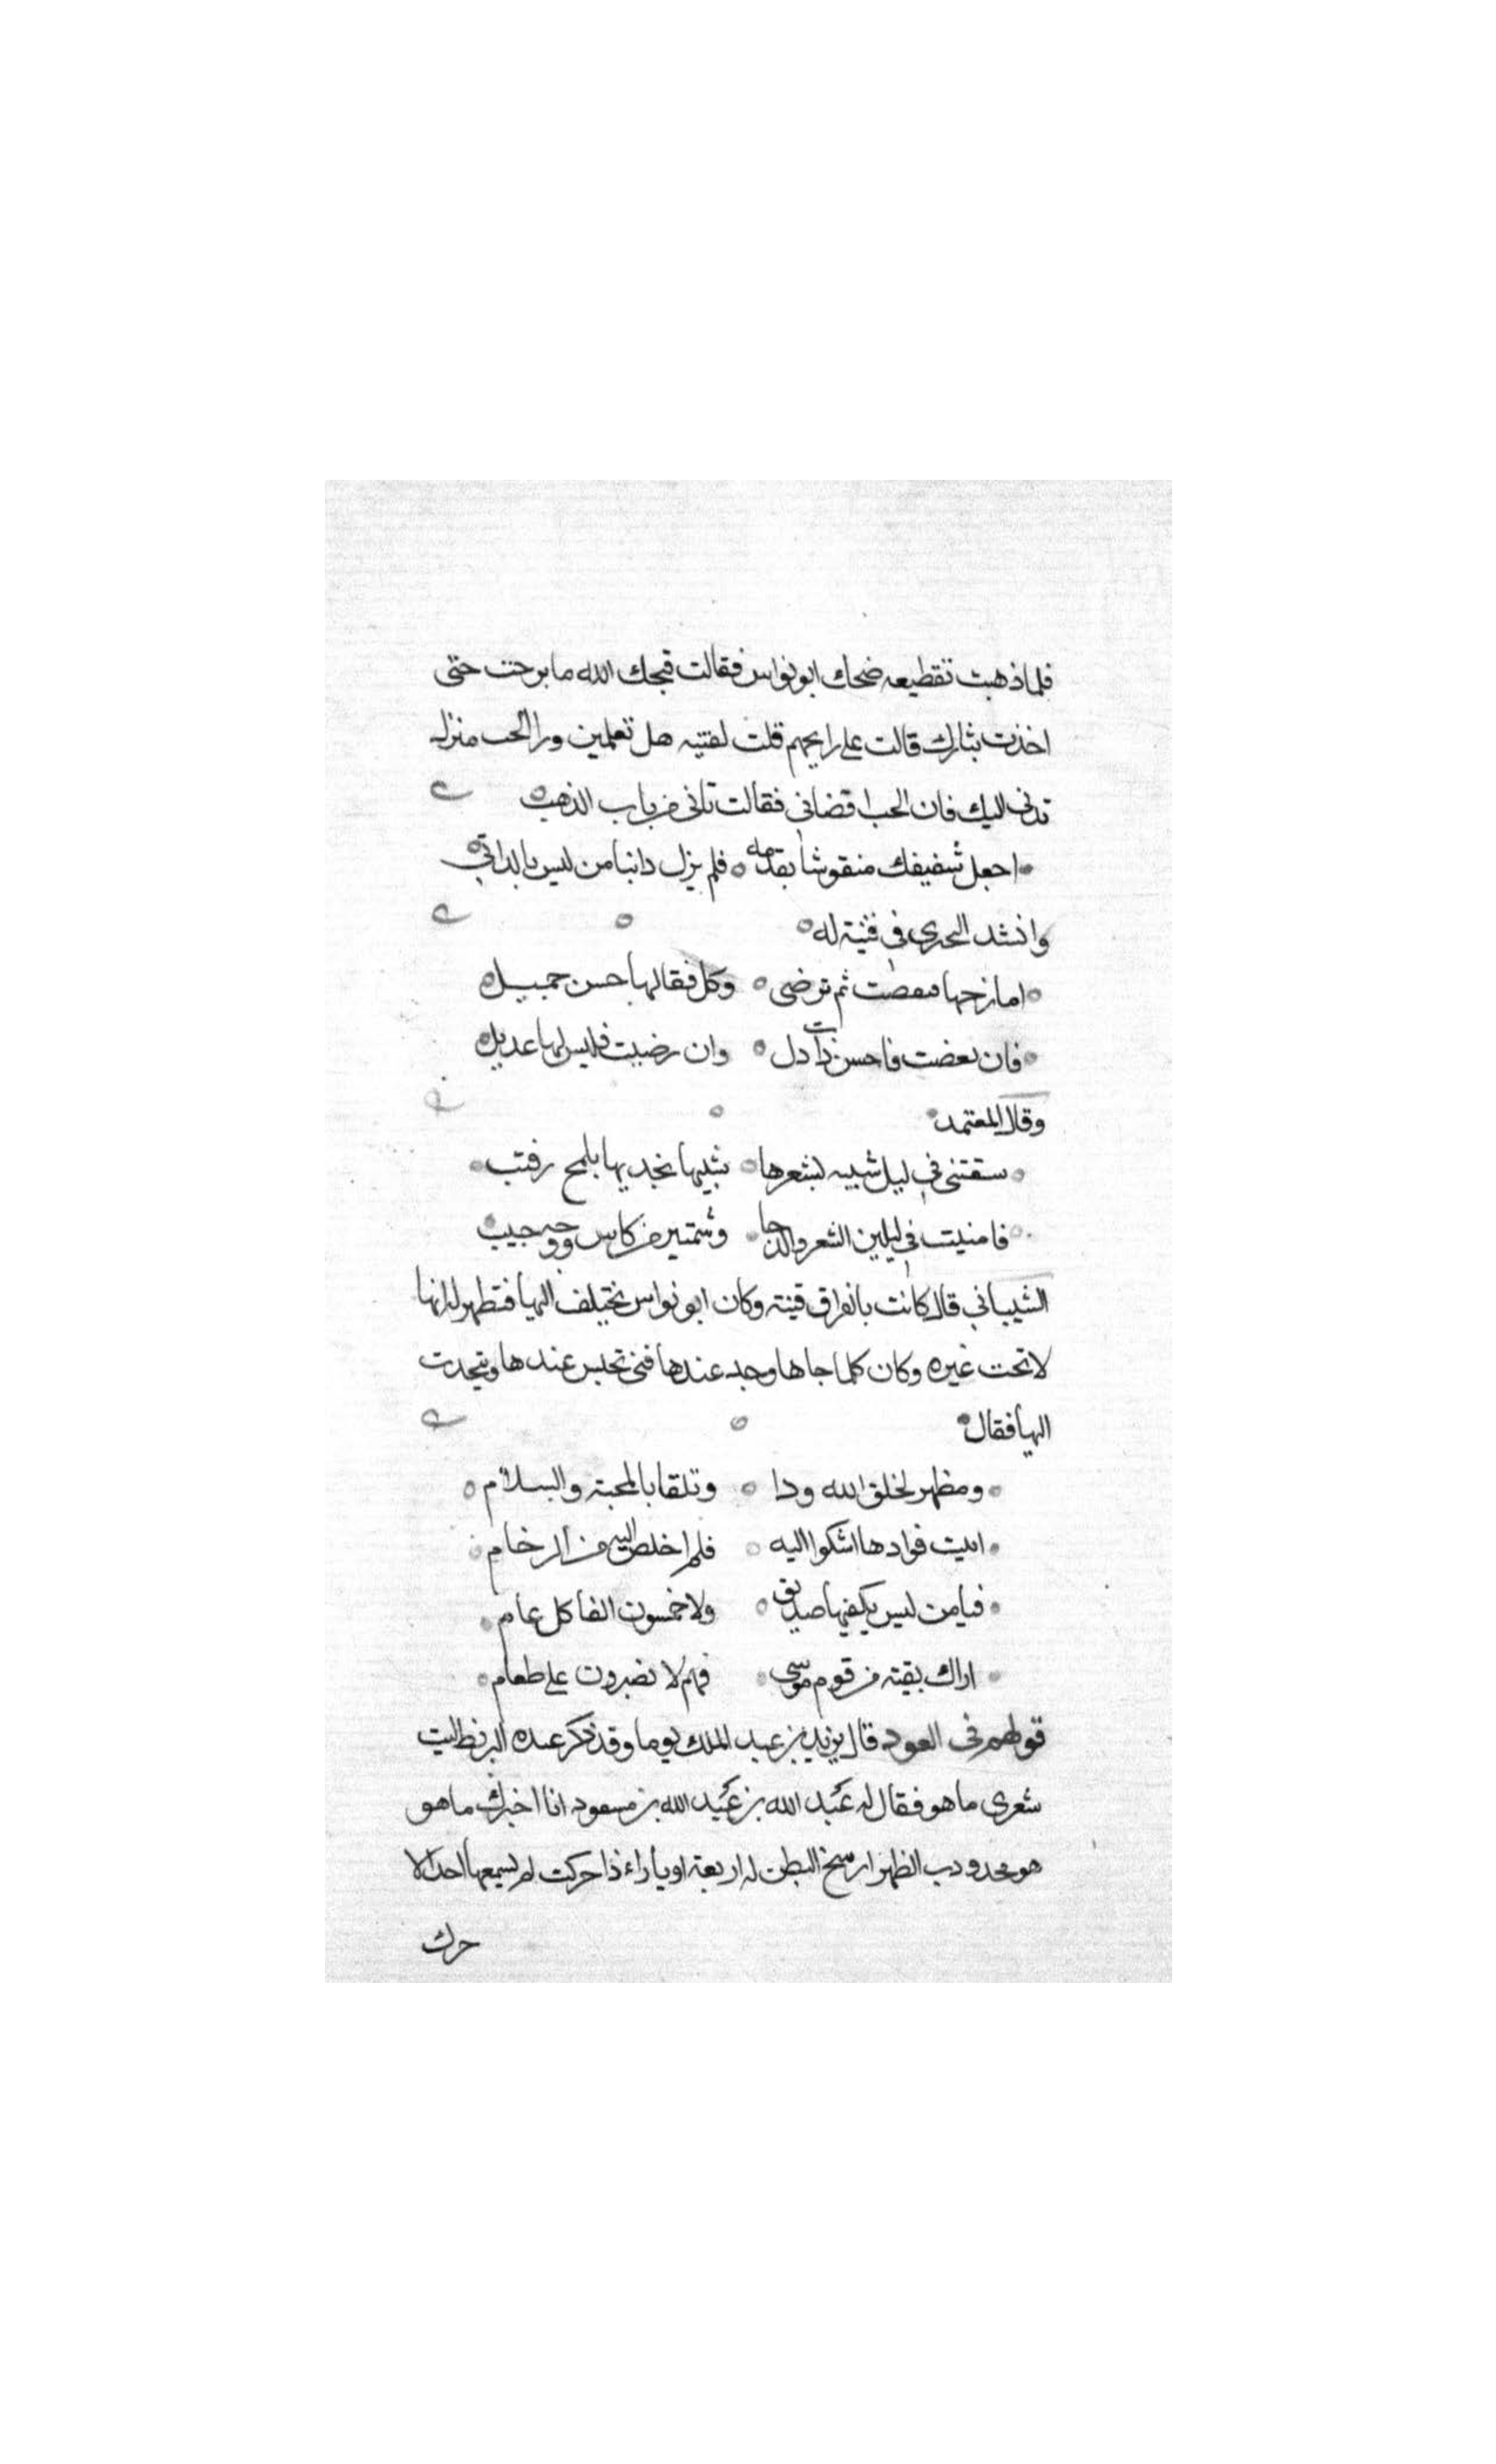 فلما ذهبت تقطيعه ضحك ابو نواس فقالت قبحك الله ما برحت حتى
اخذت بثارك قالت على رايحهم قلت لقنيه هل تعلمين ورا الحب منزله
تدنى اليك فان الحب اقضانى فقالت تاتى من باب الذهب
اجعل شفيفك منقوشا بقدمه فلم يزل دانبا من ليس بالداتى
وانشد البحرى فى قنية له
امازحها فتغضب ثم ترضى وكل فقالها حسن جميل
فان تغضت فاحسن ذات دل وان رضيت فليس لها عديل
وقال المعتمد
سقتنى فى ليل شبيه بشعرها شبيها بخديها بلمح رقتب
فامنيت فى ليلين الشعر والدجا وشمتين من كاس ووجه حبيب
الشيبانى قال كانت بالعراق قينة وكان ابو نواس يختلف اليها فتظهر له انها
لا تحت غيره وكان كلما جاها وجد عندها فتى تجلس عندها ويتحدت
اليها فقال
ومظهر لخلق الله ودا وتلقا بالمحبة والسلام
اتيت فوادها اشكوا اليه فلم اخلص اليه من الزحام
فيامن ليس يكفيها صديق ولا خمسون الفا كل عام
اراك بقية من قوم موسى فهم لا تصبرون على طعام
قولهم فى العود قال يزيد بن عبد الملك يوما وقد ذكر عنده البربط ليت
شعرى ما هو فقال له عبد الله بن عبيد الله بن مسعود انا اخبرك ما هو
هو محدودب الظهر ارسخ البطن له اربعة اوتار اذا حركت لم يسمعها احد الا
حرك